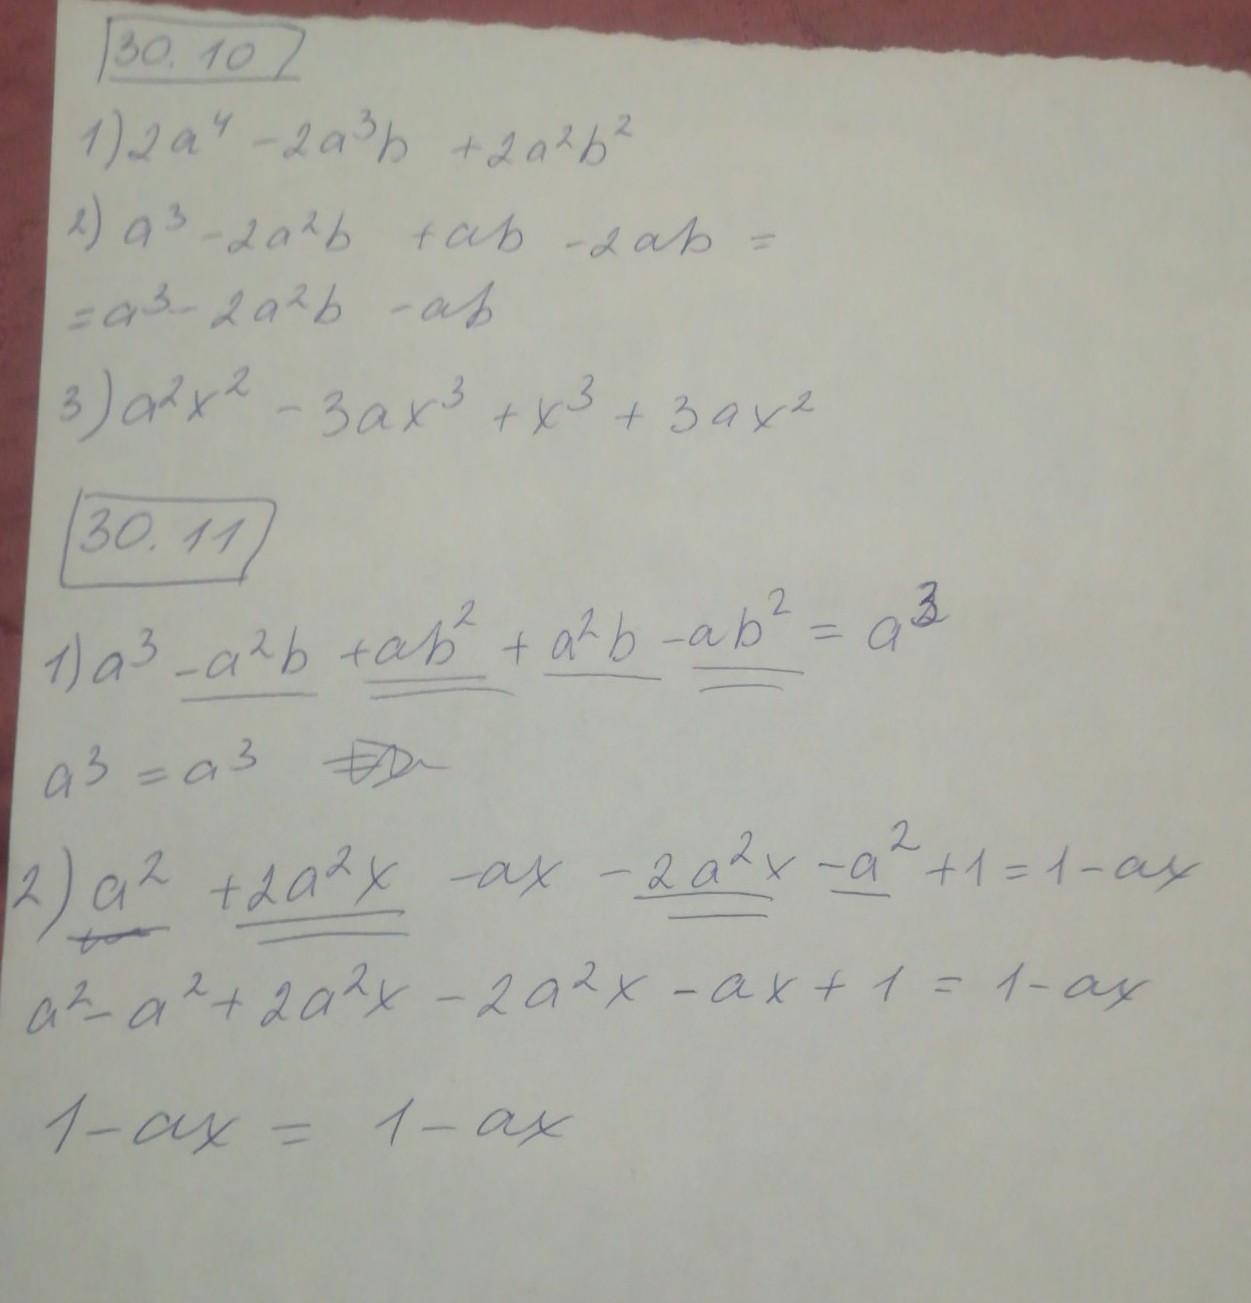 30.10
1) 2a⁴ - 2a³b + 2a²b²
2) a³ - 2a²b + ab - 2ab =
= a³ - 2a²b - ab
3) a²x² - 3ax³ + x³ + 3ax²
30.11
1) a³ - a²b + ab² + a²b - ab² = a³
a³ = a³
2) a² + 2a²x - ax - 2a²x - a² + 1 = 1 - ax
a² - a² + 2a²x - 2a²x - ax + 1 = 1 - ax
1 - ax = 1 - ax